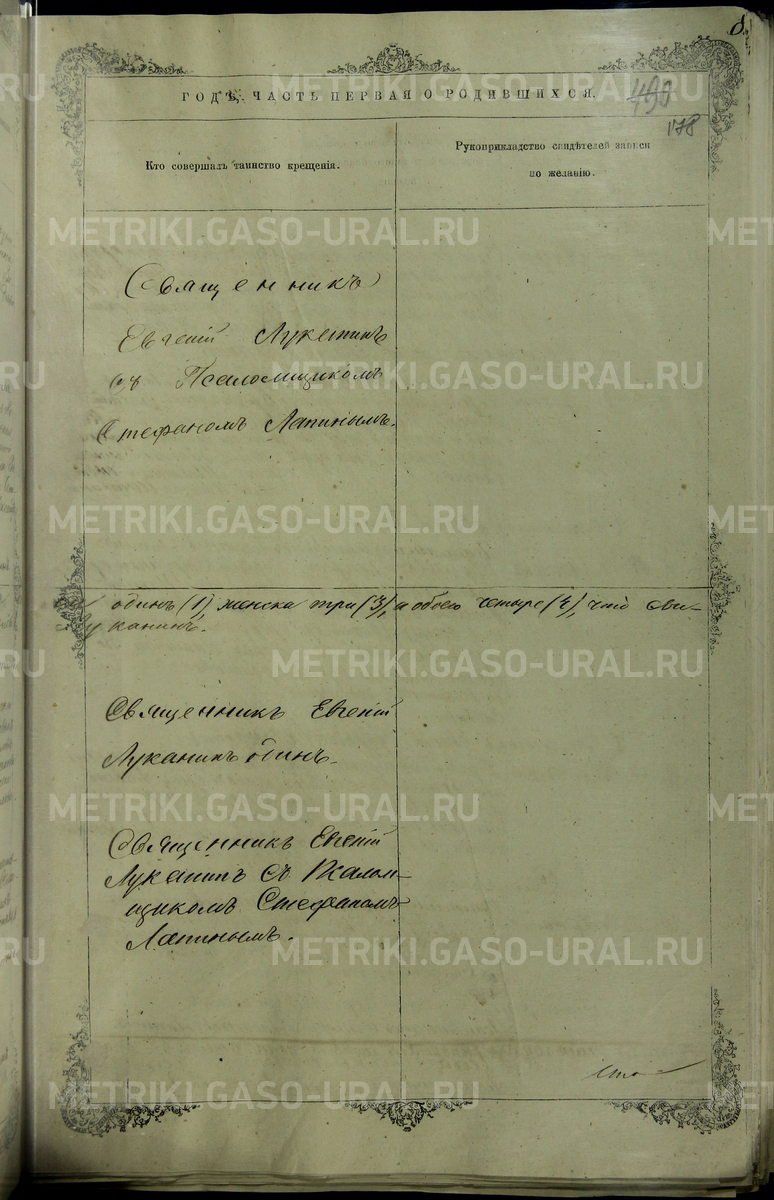 ГОДЪ, ЧАСТЬ ПЕРВАЯ О РОДИВШИХСЯ.
490
178
Кто совершалъ таинство крещенія.
Рукоприкладство свидѣтелей записи
по желанію.
METRIKI.GASO-URAL.RU
Священникъ
Евгеній Луканинъ
съ Псаломщикомъ
Стефаномъ Лапинымъ.
одинъ (1), женска три (3), а обоего четыре (4), что сви-
Луканинъ.
Священникъ Евгеній
Луканинъ один.
Священникъ Евгеній
Луканинъ съ Псалом-
щикомъ Стефаномъ
Лапинымъ.